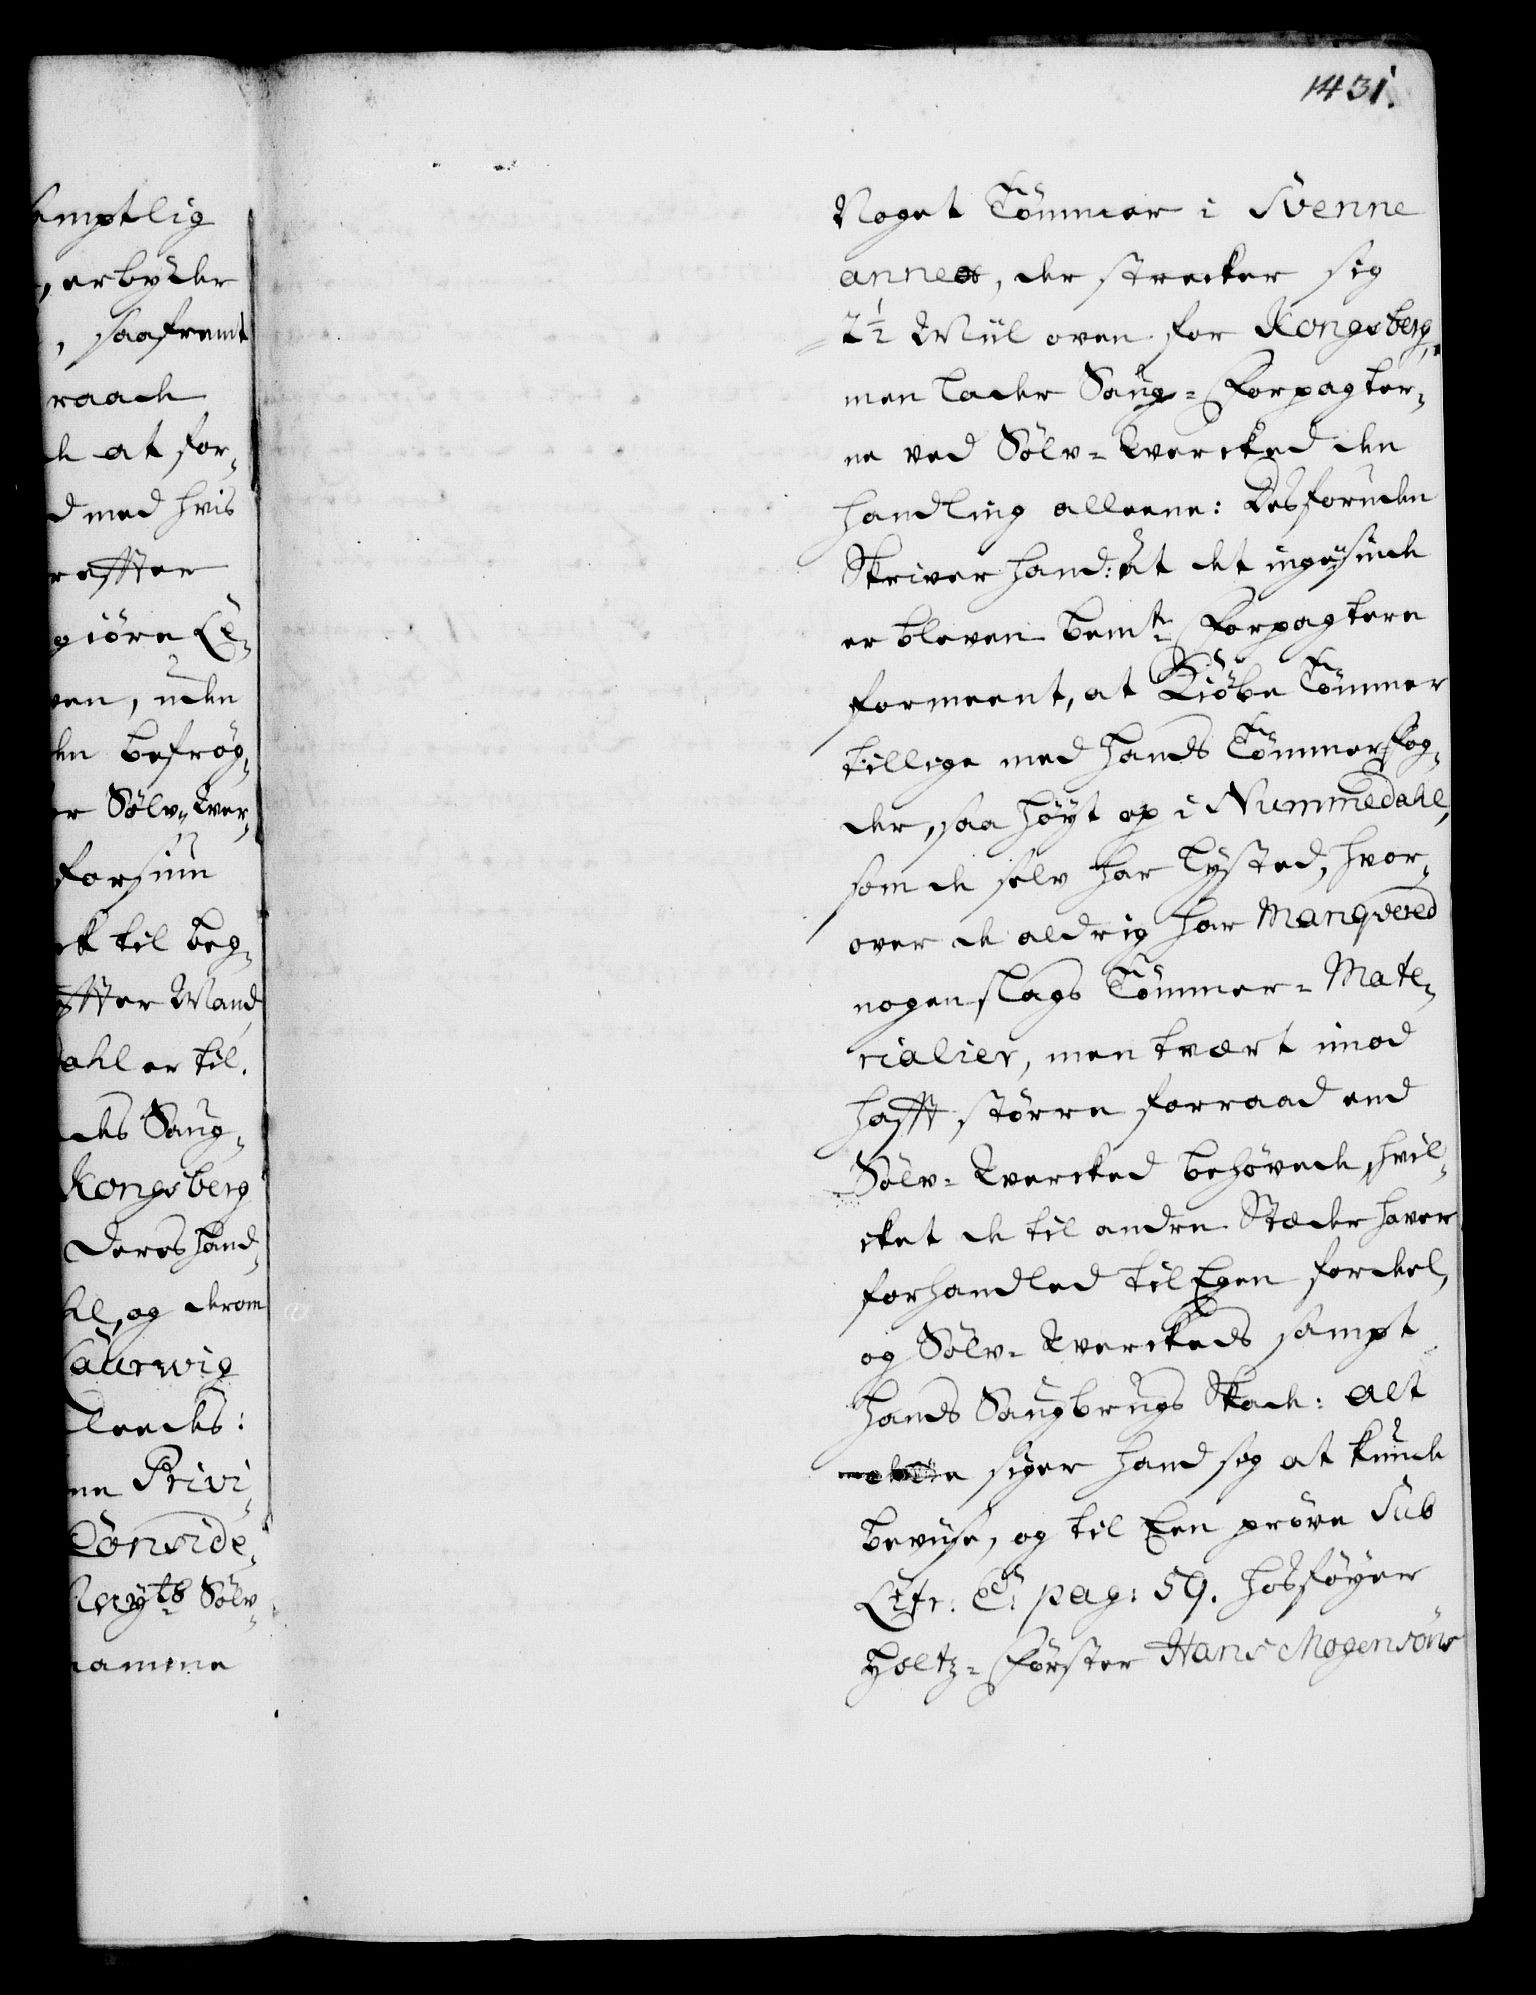 1431.
amptlig
, erbyder
, saafremt
raade
de at for-
d med hvis
reffter
giöre Le-
ven, uden
den befrög-
er Sölv-Wer-
forsiun
ck til beg-
effter Mand
dahl er til.
des Saug-
Kongsberg
deres hand-
hl, og derom
Laurwig
leedes:
ne Privi-
Conside-
Mayts Sölv-
samme
Noget Tömmer i Svenne
annex, der strecker sig
2½ Miil oven for Kongsberg,
men lader Saug-Forpagter-
ne ved Sölv-Wercked den
handling alleene: Desforuden
Skriver hand: At det ingensinde
er bleven bemte Forpagtere
formeent, at Kiöbe Tömmer
tillige med hands Tömmerfog-
der, saa höyt op i Nummedahl,
som de selv har lysted, hvor-
over de aldrig har Manqvered
nogen slags Tömmer-Mate-
rialier, men tvært imod
hafft större forraad end
Sölv-Wercked behövede, hvil-
cket de til andre Stæder haver
forhandled til Egen fordel,
og Sölv-Werckeds sampt
hands Saugbrugs Skade: alt
dette siger hand sig at kunde
bevise, og til Een pröve Sub
Litr: C: pag: 59. hosföyer
Holtz-Förster Hans Mogensöns